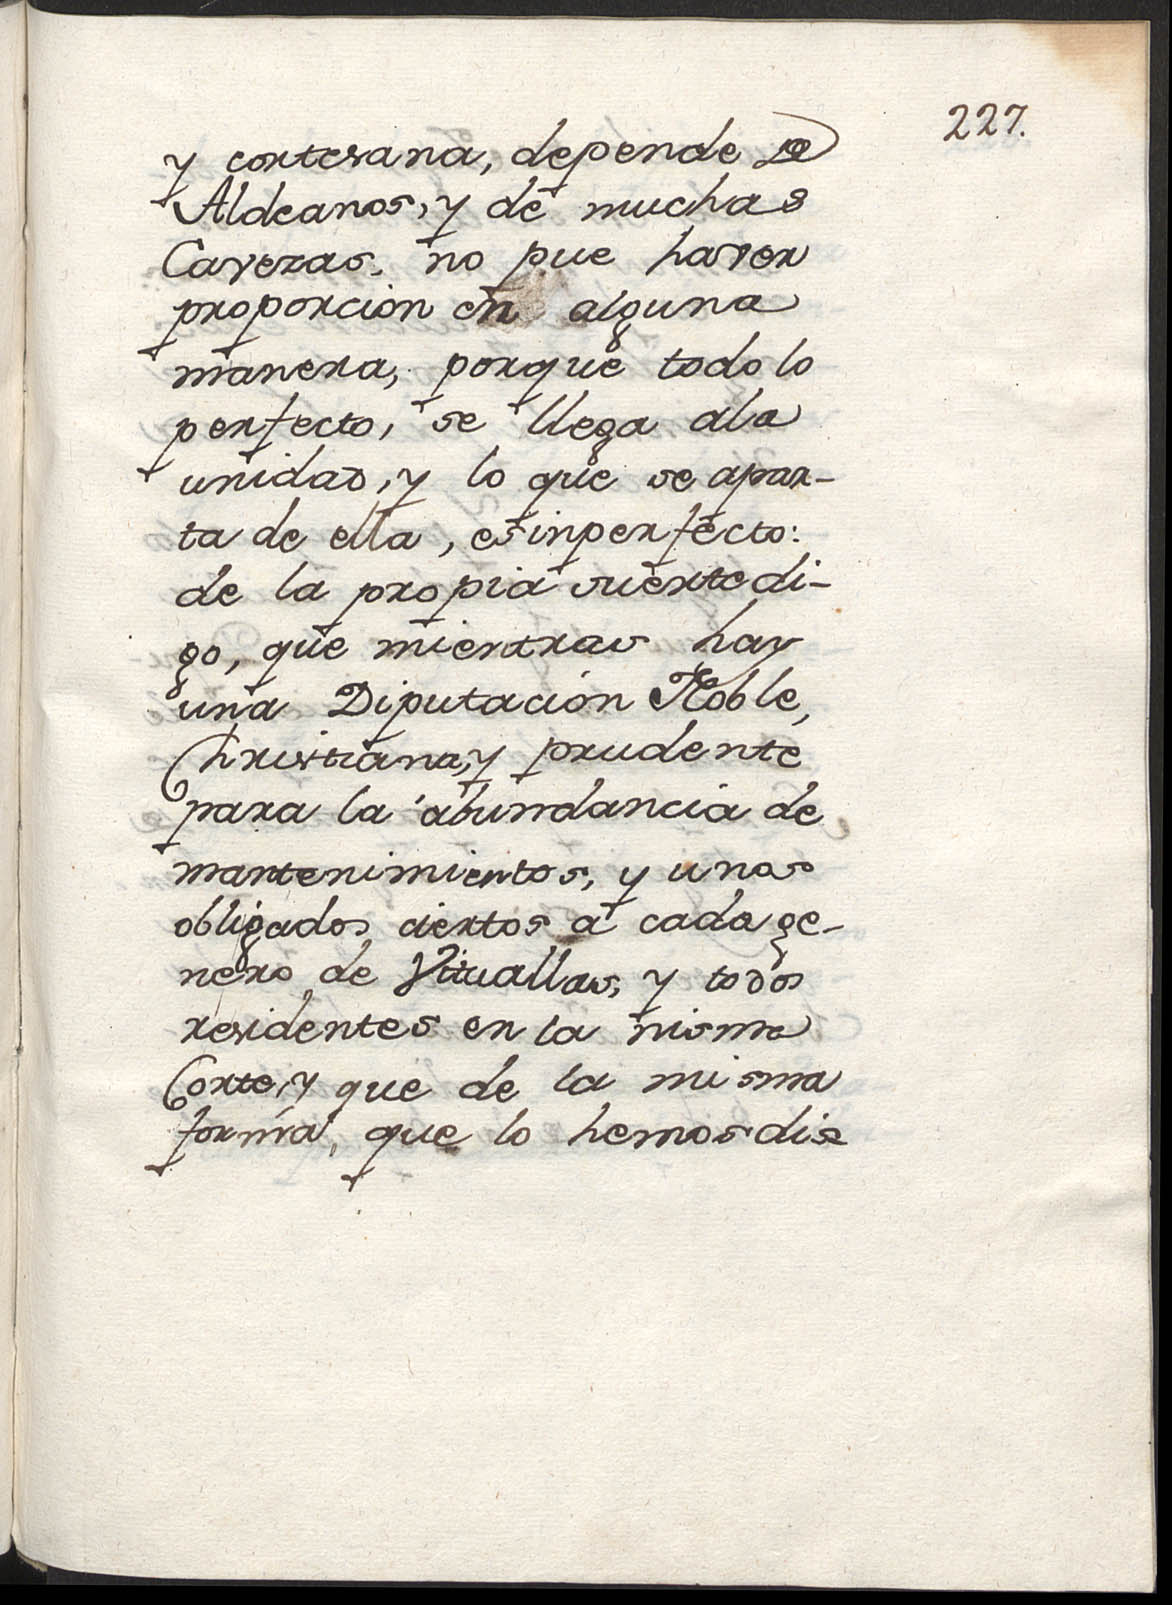 227.
y cortesana, depende de
Aldeanos, y de muchas
Cavezas, no pue haver
proporcion en alguna
manera, porque todo lo
perfecto, se llega ala
unidad, y lo que se apar-
ta de ella, es inperfecto:
de la propia suerte di-
go, que mientras hay
una Diputación Noble,
Christiana, y prudente
para la abundancia de
mantenimientos, y unos
obligados ciertos a cada ge-
nero de Vituallas, y todos
residentes en la misma
Corte, y que de la misma
forma, que lo hemos dis